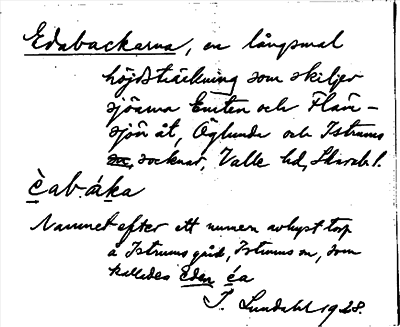 Edabackarna, en långsmal
höjdsträckning som skiljer
sjöarna Emten och Fläm-
sjön åt, Öglunda och Istrums
socknar, Valle hd, Skarab. l.
èab. áka
Namnet efter ett numera avhyst torp
å Istrums gård, Istrums sn, som
kallades Eden éa
T. Lundahl 1928.